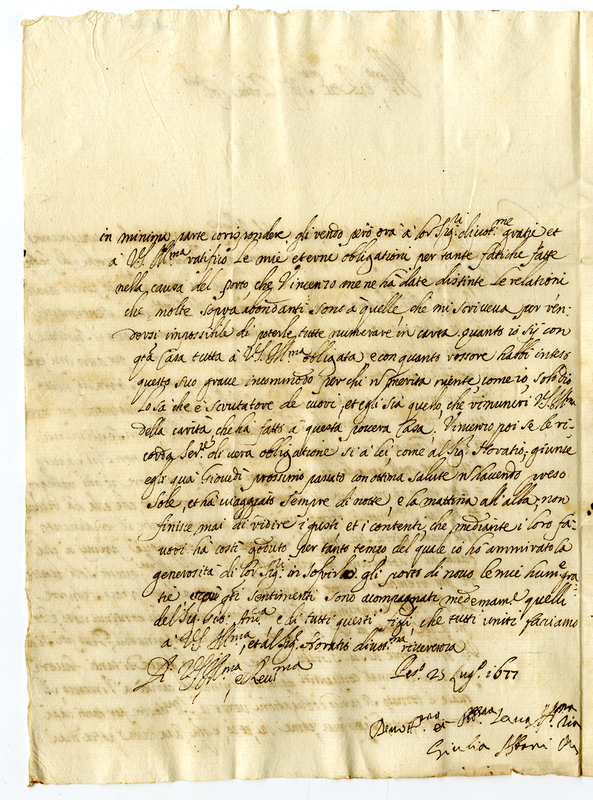 in minima parte corrispondere gli rendo però ora à lor Sigri divotme gratie et
à VS Illma ratifico le mie eterne obligationi per tante fatiche fatte
nella causa del porto, che Vincenzo me ne hà date distinte le relationi
che molte sopra abondanti sono à quelle che mi scriveva per ren-
dersi impossibile di poterle tutte numerare in carta quanto io sij con
qta Casa tutta à VS Illma obligata, e con quanto rossore habbi inteso
questo suo grave incommodo per chi n merita niente come io, solo Dio
lo sà che è scrutatore de cuori, et egli sia questo, che rimuneri VS Illma
della carità che hà fatto à questa povera Casa, Vincenzo poi se le ri-
corda Serre di vera obligatione si à lei, come al Sigr Horatio, giunse
egli quà Giovedì prossimo passato con ottima salute n havendo preso
Sole, et hà viaggiato sempre di notte, e la mattina all'alba, non
finisce mai di ridire i gusti et i contenti, che mediante i loro fa-
vori hà costì goduto per tanto tempo del quale io hò ammirato la
generosità di lor Sigri in sofrirlo gli porto di nuovo le mie hume gra-
tie gli sentimenti sono acompagnati medemamte quelli
del Sig. Gio: Anda e di tutti questi figli che tutti uniti facciamo
à VS Illma, et al Sigr Horatio divotma riverenza
Di VS Illma e Revma
Pes.o 25 lugl. 1677
Devotma et Serva
Giulia Albani